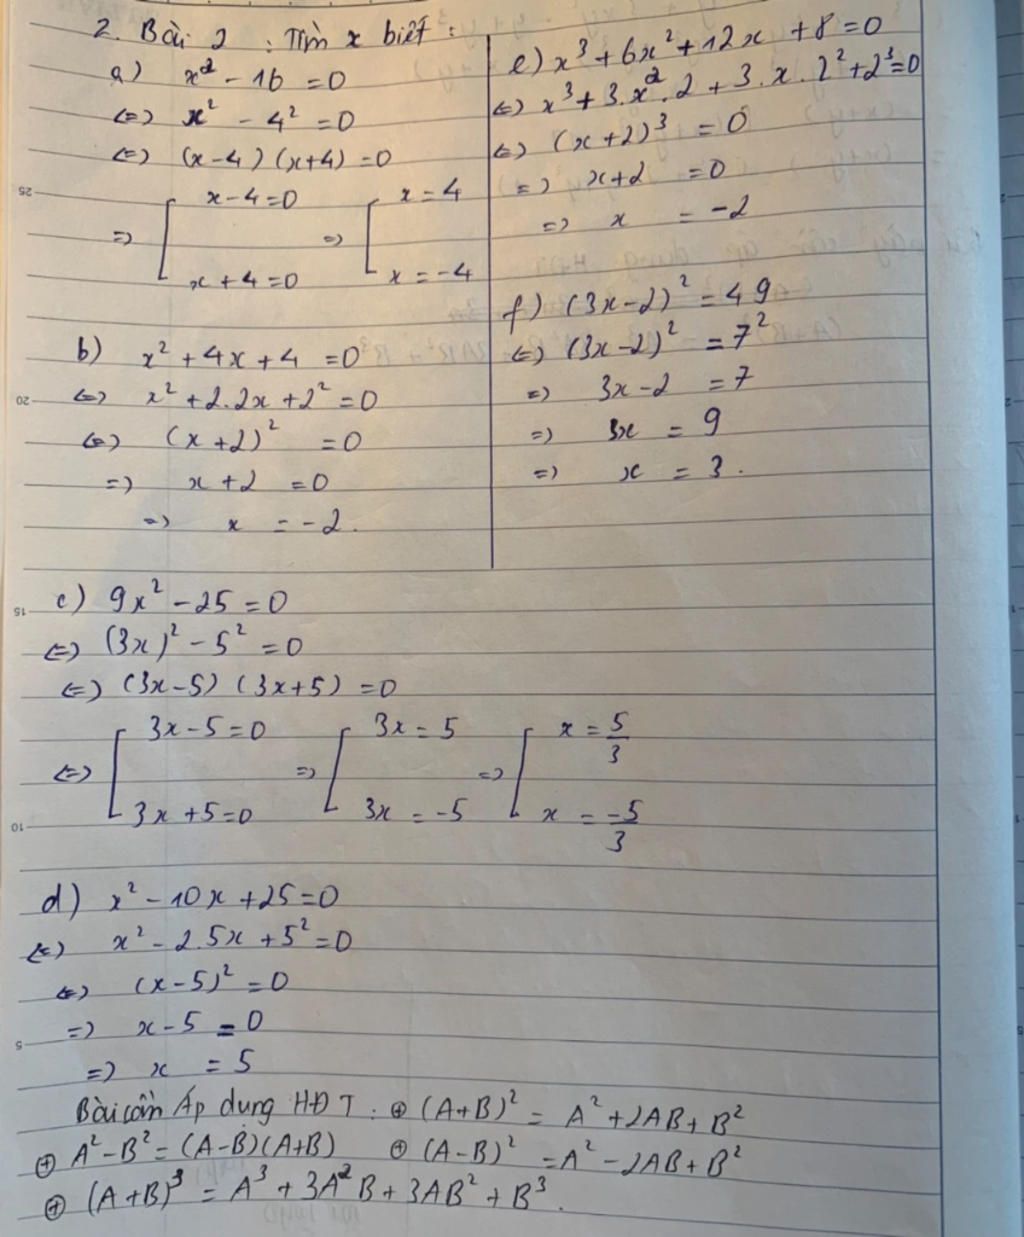 2. Bài 2 : Tìm x biết :
a) x² - 16 = 0
<=> x² - 4² = 0
<=> (x-4) (x+4) = 0
=> [ x-4=0 => [ x = 4
x+4=0 x = -4
b) x² + 4x + 4 = 0
<=> x² + 2.2x + 2² = 0
<=> (x+2)² = 0
=> x+2 = 0
=> x = -2.
e) x³ + 6x² + 12x + 8 = 0
<=> x³ + 3.x².2 + 3.x.2² + 2³ = 0
<=> (x+2)³ = 0
=> x+2 = 0
=> x = -2
f) (3x-2)² = 49
<=> (3x-2)² = 7²
=> 3x-2 = 7
=> 3x = 9
=> x = 3.
c) 9x² - 25 = 0
<=> (3x)² - 5² = 0
<=> (3x-5) (3x+5) = 0
<=> [ 3x-5=0 => [ 3x = 5 => [ x = 5/3
3x+5=0 3x = -5 x = -5/3
d) x² - 10x + 25 = 0
<=> x² - 2.5x + 5² = 0
<=> (x-5)² = 0
=> x-5 = 0
=> x = 5
Bài cần Áp dụng HĐT : ⊕ (A+B)² = A² + 2AB + B²
⊕ A² - B² = (A-B)(A+B) ⊕ (A-B)² = A² - 2AB + B²
⊕ (A+B)³ = A³ + 3A²B + 3AB² + B³.
25
20
15
10
5